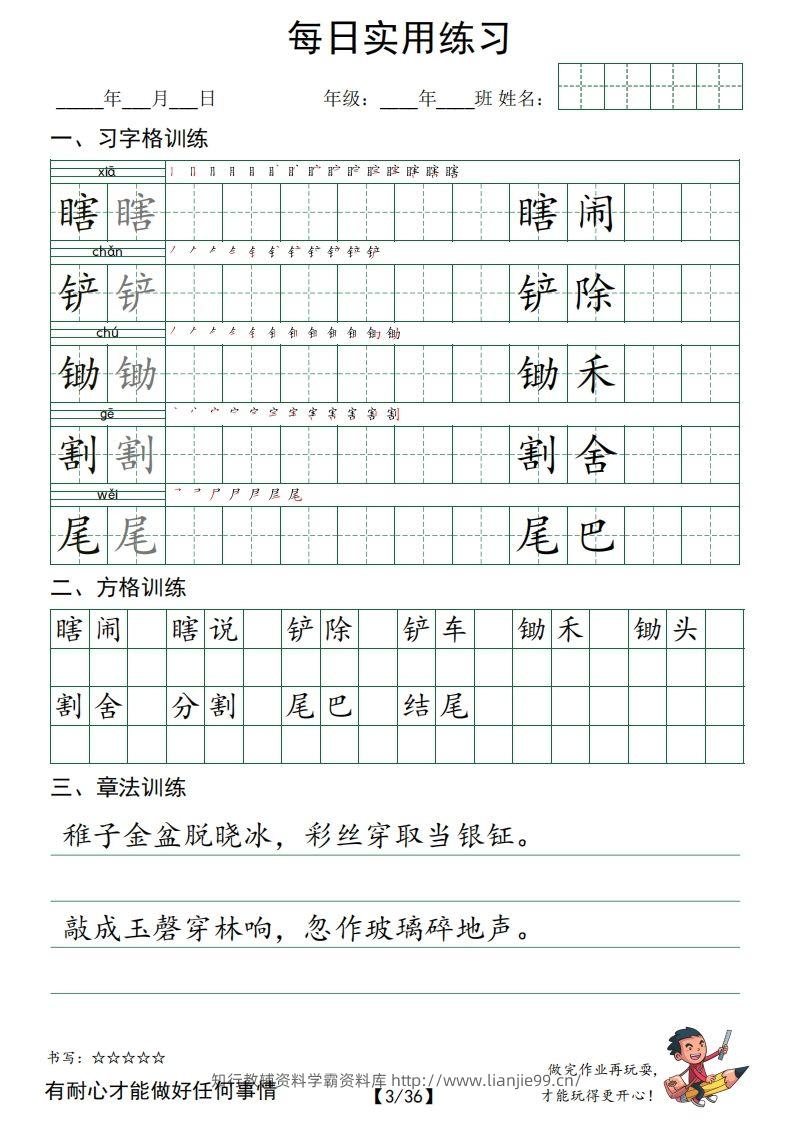 每日实用练习
_____年___月___日 年级：____年____班 姓名：
一、习字格训练
xiā
瞎 瞎 瞎 闹
chǎn
铲 铲 铲 除
chú
锄 锄 锄 禾
gē
割 割 割 舍
wěi
尾 尾 尾 巴
二、方格训练
瞎 闹 瞎 说 铲 除 铲 车 锄 禾 锄 头
割 舍 分 割 尾 巴 结 尾
三、章法训练
稚子金盆脱晓冰，彩丝穿取当银钲。
敲成玉磬穿林响，忽作玻璃碎地声。
书写：☆☆☆☆☆
有耐心才能做好任何事情
知行教辅资料学霸资料库 http://www.lianjie99.cn/
【3/36】
做完作业再玩耍，
才能玩得更开心！